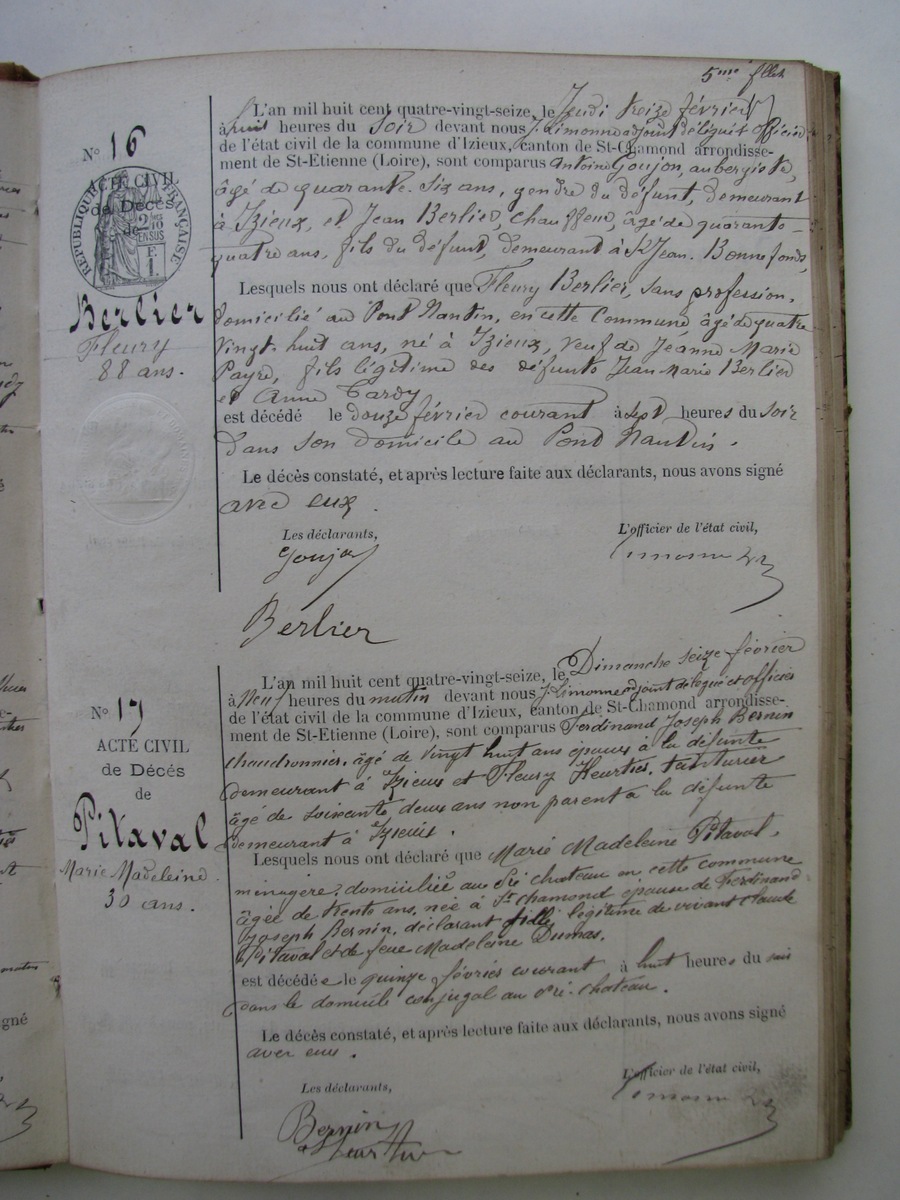 5me fllet
L'an mil huit cent quatre-vingt-seize, le Jeudi treize février
à huit heures du soir devant nous J. Limonne adjoint délégué et officier
de l'état civil de la commune d'Izieux, canton de St-Chamond arrondisse-
ment de St-Etienne (Loire), sont comparus Antoine Goujon, aubergiste,
âgé de quarante-six ans, gendre du défunt, demeurant
à Izieux, et Jean Berlier, chauffeur, âgé de quarante-
quatre ans, fils du défunt, demeurant à St Jean-Bonnefonds,
No 16
ACTE CIVIL
de Décès
de
RÉPUBLIQUE FRANÇAISE
2/10
EN SUS
Berlier
Fleury
88 ans.
Lesquels nous ont déclaré que Fleury Berlier, sans profession,
domicilié au Pont Nantin, en cette Commune âgé de quatre
vingt-huit ans, né à Izieux, veuf de Jeanne Marie
Payre, fils légitime des défunts Jean Marie Berlier
et Anne Tardy
est décédé le douze février courant à sept heures du soir
dans son domicile au Pont Nantin.
Le décès constaté, et après lecture faite aux déclarants, nous avons signé
avec eux.
Les déclarants,
L'officier de l'état civil,
Goujon
Limonne
Berlier
L'an mil huit cent quatre-vingt-seize, le Dimanche seize février
à Neuf heures du matin devant nous J. Limonne adjoint délégué et officier
de l'état civil de la commune d'Izieux, canton de St-Chamond arrondisse-
ment de St-Etienne (Loire), sont comparus Ferdinand Joseph Bernin
chaudronnier, âgé de vingt huit ans époux à la défunte
demeurant à Izieux et Fleury Heurtier, teinturier
âgé de soixante deux ans non parent à la défunte
demeurant à Izieux.
No 17
ACTE CIVIL
de Décès
de
Pitaval
Marie Madeleine
30 ans.
Lesquels nous ont déclaré que Marie Madeleine Pitaval,
ménagère, domiciliée au Pré-chateau en cette commune
âgée de trente ans, née à St-chamond épouse de Ferdinand
Joseph Bernin, déclarant fille légitime de vivant Claude
Pitaval et de feue Madeleine Dumas.
est décédée le quinze février courant à huit heures du soir
dans le domicile conjugal au Pré-chateau.
Le décès constaté, et après lecture faite aux déclarants, nous avons signé
avec eux.
Les déclarants,
L'officier de l'état civil,
Limonne
Bernin
Heurtier